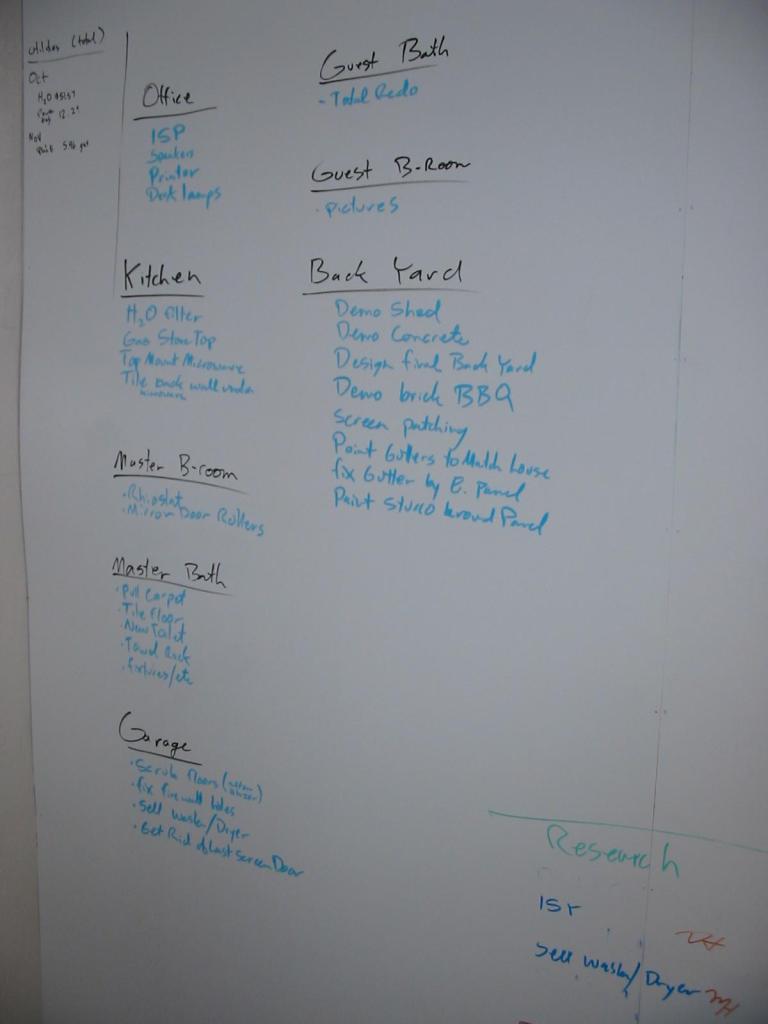 utilities (total)
Oct
H2O
Nov
Office
ISP
Speakers
Printer
Desk lamps
Guest Bath
- Total Redo
Guest B-Room
- pictures
Kitchen
H2O filter
Gas Stove Top
Top Mount Microwave
Tile back wall under
microwave
Back Yard
Demo Shed
Demo Concrete
Design final Back Yard
Demo brick BBQ
Screen patching
Paint Gutters to Match house
fix Gutter by E. Panel
Paint Stucco around Panel
Master B-room
• Rhiostat
• Mirror Door Rollers
Master Bath
• Pull Carpet
• Tile Floor
• New Toilet
• Towel Rack
• fixtures/etc
Garage
• Scrub floors
• fix firewall holes
• Sell Washer/Dryer
• Get Rid of Last Screen Door
Research
ISP
Sell Washer/Dryer